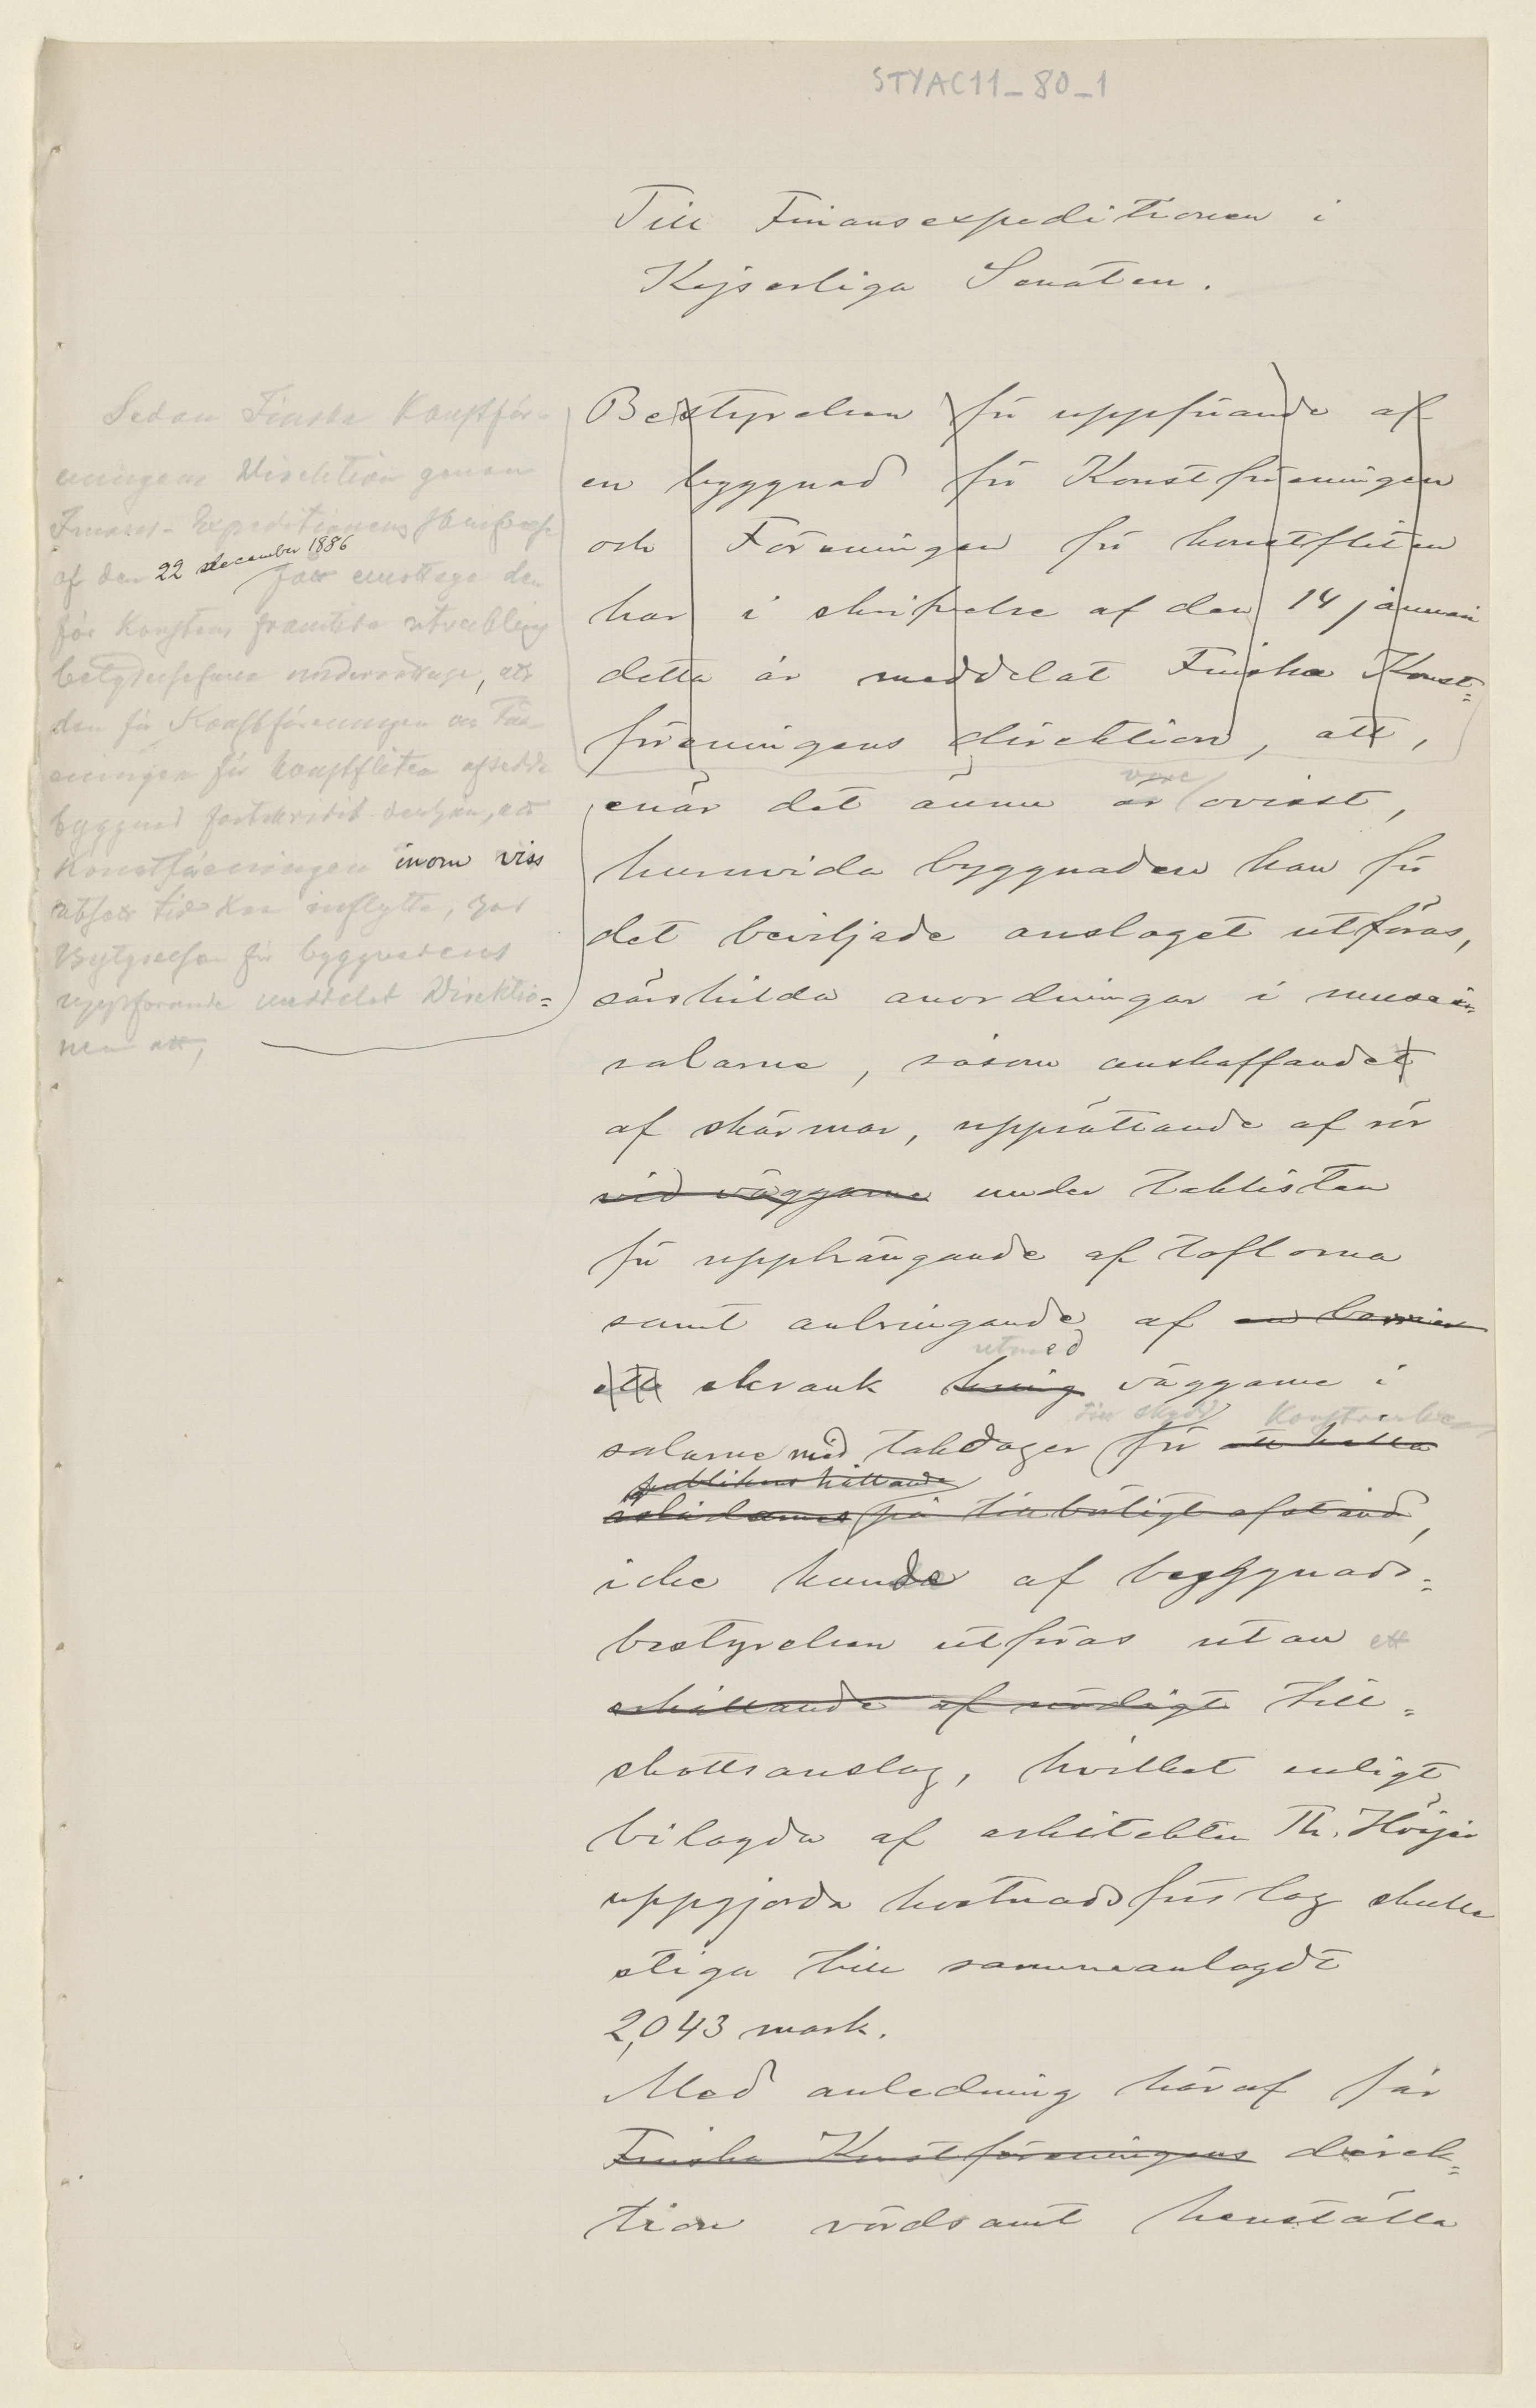 STYAC11_80_1
Till Finansexpeditionen i
Kejserliga Senaten.
Sedan Finska Konstför-
eningens Direktion genom
Finans-Expeditionens
af den 22 december 1886
fått emottaga den
för Konstens framtida utveckling
betydelsefulla underrättelse, att
den för Konstföreningen och För-
eningen för konstfliten afsedda
byggnad fortskridit derhän, att
Konstföreningen inom viss
utsatt tid kan inflytta, har
Bestyrelsen för byggnadens
uppförande meddelat Direktio=
nen att,
Bestyrelsen för uppförande af
en byggnad för Konstföreningen
och Föreningen för konstfliten
har i skrifvelse af den 14 januari
detta år meddelat Finska Konst=
föreningens direktion, att,
enär det ännu är vore ovisst,
huruvida byggnaden kan för
det beviljade anslaget utföras,
särskilda anordningar i museisalarne, såsom anskaffandet
af skärmar, upprättande af rör
vid väggarne under taklisten
för upphängande af taflorna
samt anbringande af en barrier
ett skrank kring utmed väggarne i
salarne med takdager till skydd för att hålla Konstverken
publikens hållande
åskådarnes på tillbörligt afstånd,
icke kunde af byggnads=
bestyrelsen utföras utan ett
erhållande af nödigt till=
skottsanslag, hvilket enligt
bilagda af arkitekten Th. Höijer
uppgjorda kostnadsförslag skulle
stiga till sammanlagdt
2,043 mark.
Med anledning häraf får
Finska Konstföreningens direk=
tion vördsamt hemställa